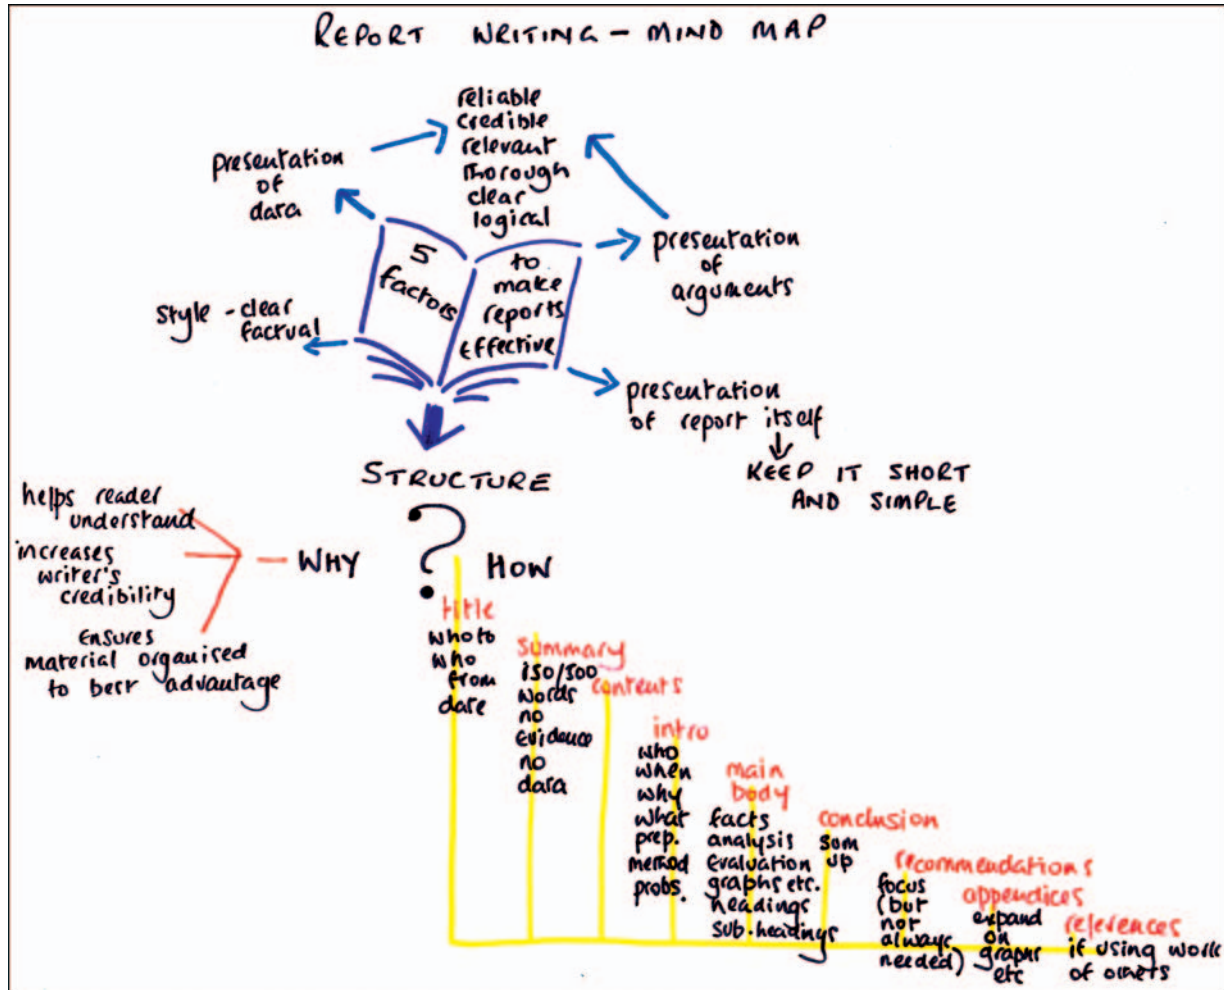 REPORT WRITING - MIND MAP
reliable
credible
relevant
thorough
clear
logical
presentation
of
data
5
factors
to
make
reports
effective
presentation
of
arguments
style - clear
factual
presentation
of report itself
KEEP IT SHORT
AND SIMPLE
STRUCTURE
?
helps reader
understand
increases
writer's
credibility
Ensures
material organised
to best advantage
WHY
HOW
title
who to
who
from
date
summary
150/500
words
no
Evidence
no
data
contents
intro
who
when
why
what
prep.
method
probs.
main
body
facts
analysis
Evaluation
graphs etc.
headings
sub-headings
conclusion
sum
up
recommendations
focus
(but
not
always
needed)
appendices
expand
on
graphs
etc
references
if using work
of others